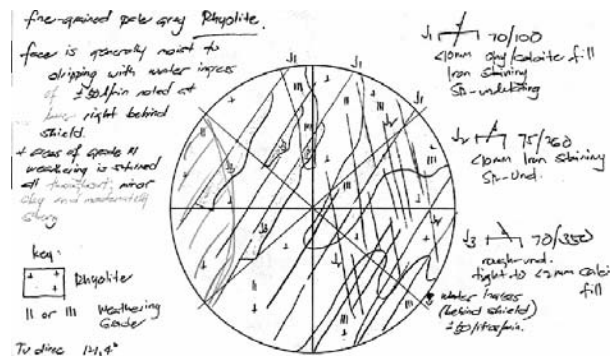 fine-grained pale gray Rhyolite.
face is generally moist to
dripping with water ingress
of ±50l/min noted at
right behind
shield.
+ areas of grade III
weathering is stained
minor
clay and moderately
strong
key:
Rhyolite
II or III Weathering
Grade
J1
J1
J1
J2
J2
III
III
II
J1 70/100
<10mm clay/calcite fill
Iron staining
Sm-undulating
J2 75/260
<10mm Iron staining
Sm-Und.
J3 70/350
rough-und.
tight to <2mm calcite
fill
water ingress
(behind shield)
±50 litres/min.